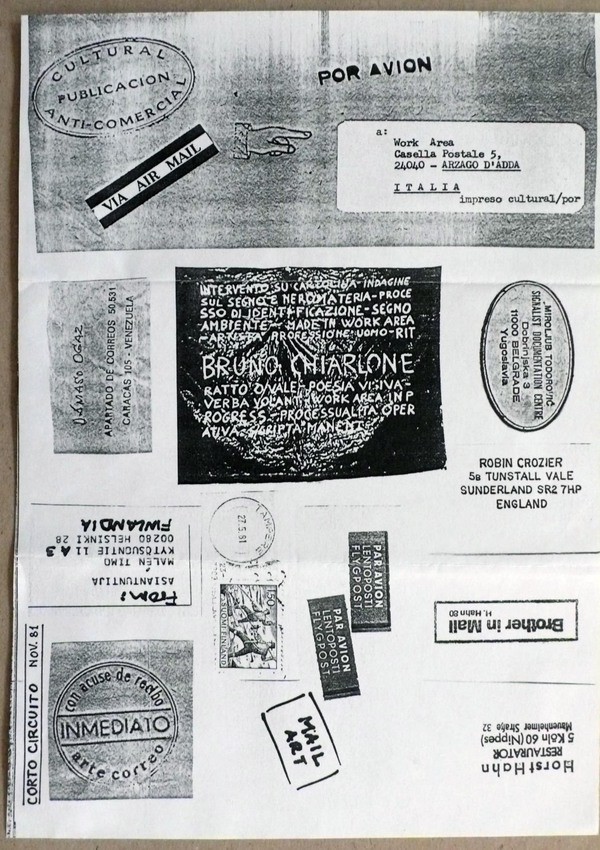 CULTURAL
PUBLICACION
ANTI-COMERCIAL
POR AVION
VIA AIR MAIL
a:
Work Area
Casella Postale 5,
24040 - ARZAGO D'ADDA
ITALIA
impreso cultural/por
DAMASO OGAZ
APARTADO DE CORREOS 50.531
CARACAS 105 - VENEZUELA
INTERVENTO SU CARTOLINA-INDAGINE
SUL SEGNO E NEROMATERIA-PROCE
SSO DI IDENTIFICAZIONE-SEGNO
AMBIENTE- MADE IN WORK AREA
-ARTISTA PROFESSIONE UOMO-RIT
BRUNO CHIARLONE
RATTO OVALE-POESIA VISIVA-
VERBA VOLANT, WORK AREA IN P
ROGRESS-PROCESSUALITA OPER
ATIVA-SCRIPTA MANENT
MIROLJUB TODOROVIĆ
SIGNALIST DOCUMENTATION CENTRE
Dobrinjska 3
11000 BELGRADE
Yugoslavia
ROBIN CROZIER
5B TUNSTALL VALE
SUNDERLAND SR2 7HP
ENGLAND
From:
ASIANTUNTIJA
MALEN TIMO
KYTÖSUONTIE 11 A 3
00280 HELSINKI 28
FINLANDIA
TAMPERE
27.5.81
150
SUOMI FINLAND
PAR AVION
LENTOPOSTI
FLYGPOST
PAR AVION
LENTOPOSTI
FLYGPOST
Brother in Mail
H. Hahn 80
CORTO CIRCUITO NOV. 81
con acuse de recibo
INMEDIATO
arte correo
MAIL
ART
Horst Hahn
RESTAURATOR
5 Köln 60 (Nippes)
Mauenheimer Straße 32